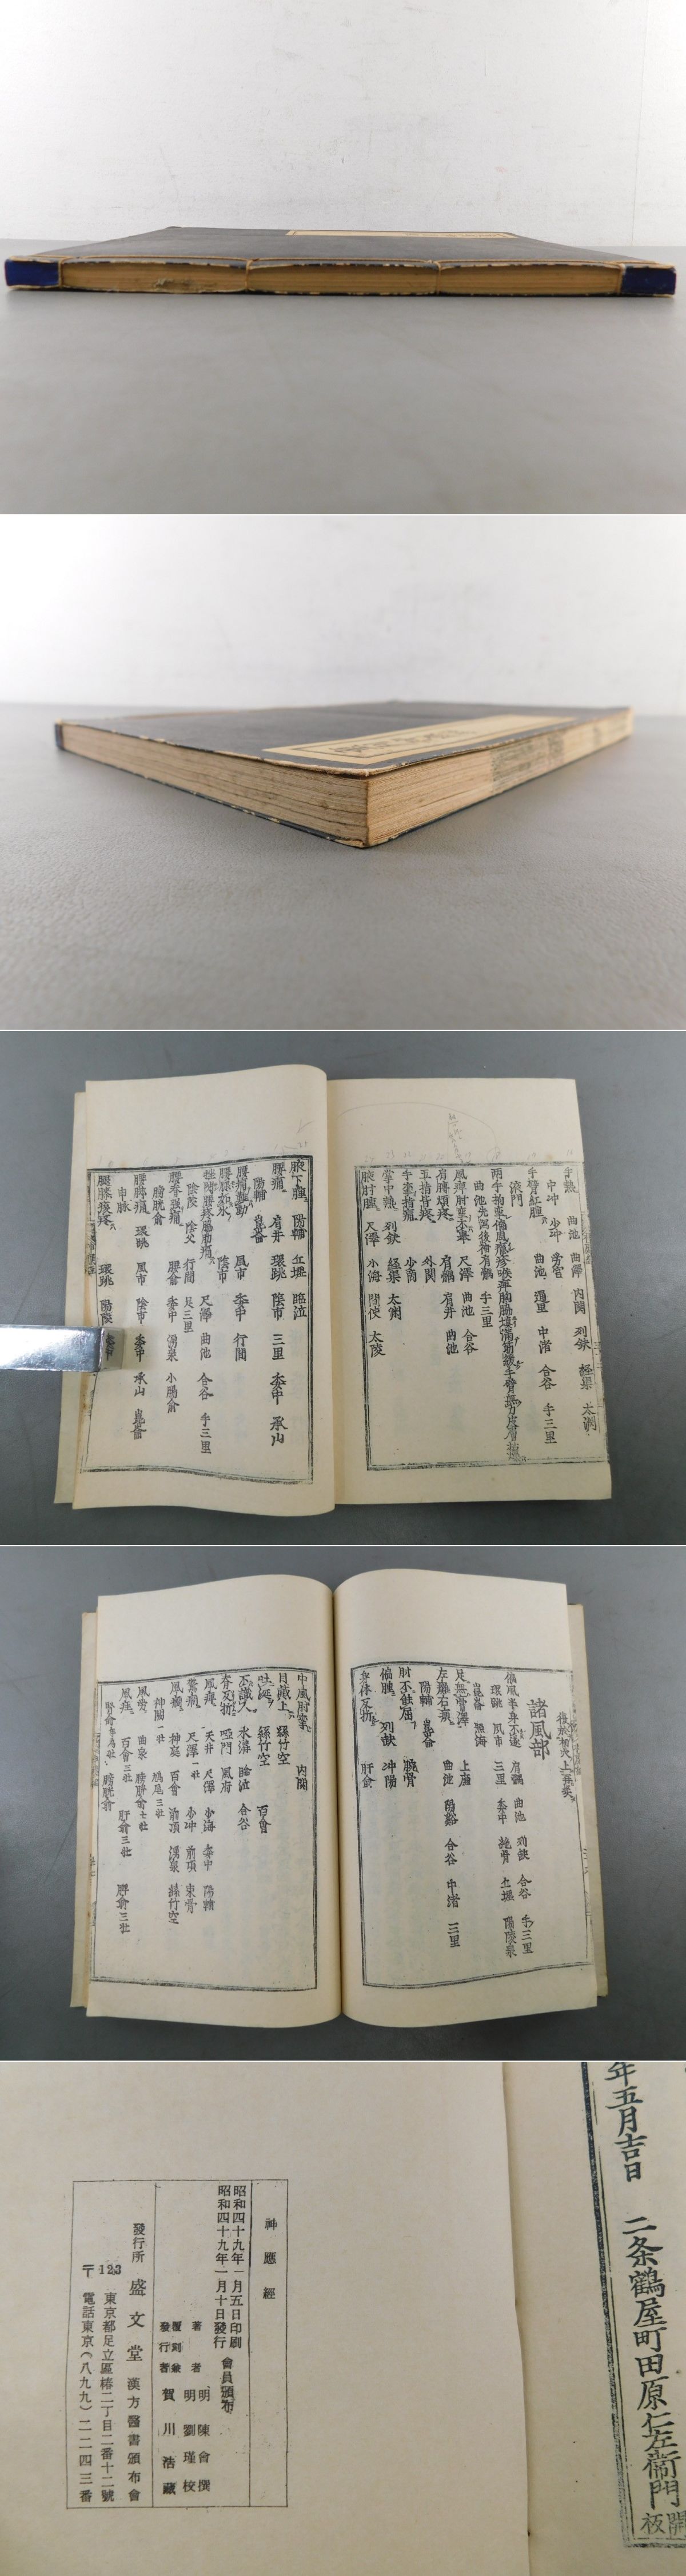 手熱 曲池 曲澤 内關 列缺 經渠 太淵
中冲 少冲 勞宮
手臂紅腫 曲池 通里 中渚 合谷 手三里
液門
曲池先瀉後補肩髃 手三里
尺澤 曲池 合谷
肩髃 肩井 曲池
五指皆疼 外關
手拏指痛 少商
掌中熱 列缺 經渠 太淵
腋肘腫 尺澤 小海 間使 大陵
腋下腫 陽輔 丘墟 臨泣
腰痛 肩井 環跳 陰市 三里 委中 承山
陽輔 崑崙
風市 委中 行間
陰市
尺澤 曲池 合谷 手三里
陰陵 陰交 行間 足三里
腰脊強痛 腰俞 委中 湧泉 小腸俞
膀胱俞
腰脚痛 環跳 風市 陰市 委中 承山 崑崙
申脉
腰膝痰疼 環跳 陽陵 委中
諸風部
偏風半身不遂 肩髃 曲池 列缺 合谷 手三里
環跳 風市 三里 委中 絶骨 丘墟 陽陵泉
崑崙 照海
足無膏澤 上廉
左癱右瘓 曲池 陽谿 合谷 中渚 三里
陽輔 崑崙
肘不能屈 腕骨
偏腫 列缺 冲陽
身体反折 肝俞
中風肘攣 内關
目戴上 絲竹空
吐涎 絲竹空 百會
不識人 水溝 臨泣 合谷
脊反折 瘂門 風府
風痺 天井 尺澤 少海 委中 陽輔
驚癇 尺澤一壮 少冲 前頂 束骨
風癇 神庭 百會 前頂 湧泉 絲竹空
神闕一壮 鳩尾三壮
風勞 曲泉 膀胱俞七壮
風疰 百會二壮 肝俞三壮 脾俞三壮
腎俞年為壮 膀胱俞
年五月吉日 二条鶴屋町田原仁左衞門
開板
神應經
昭和四十九年一月五日印刷
昭和四十九年一月十日發行 會員頒布
著者 明 陳會 撰
明 劉瑾 校
覆刻兼
發行者 賀川浩藏
發行所 盛文堂 漢方醫書頒布會
東京都足立區椿二丁目二番十二號
〒123 電話東京(八九九)二二四三番